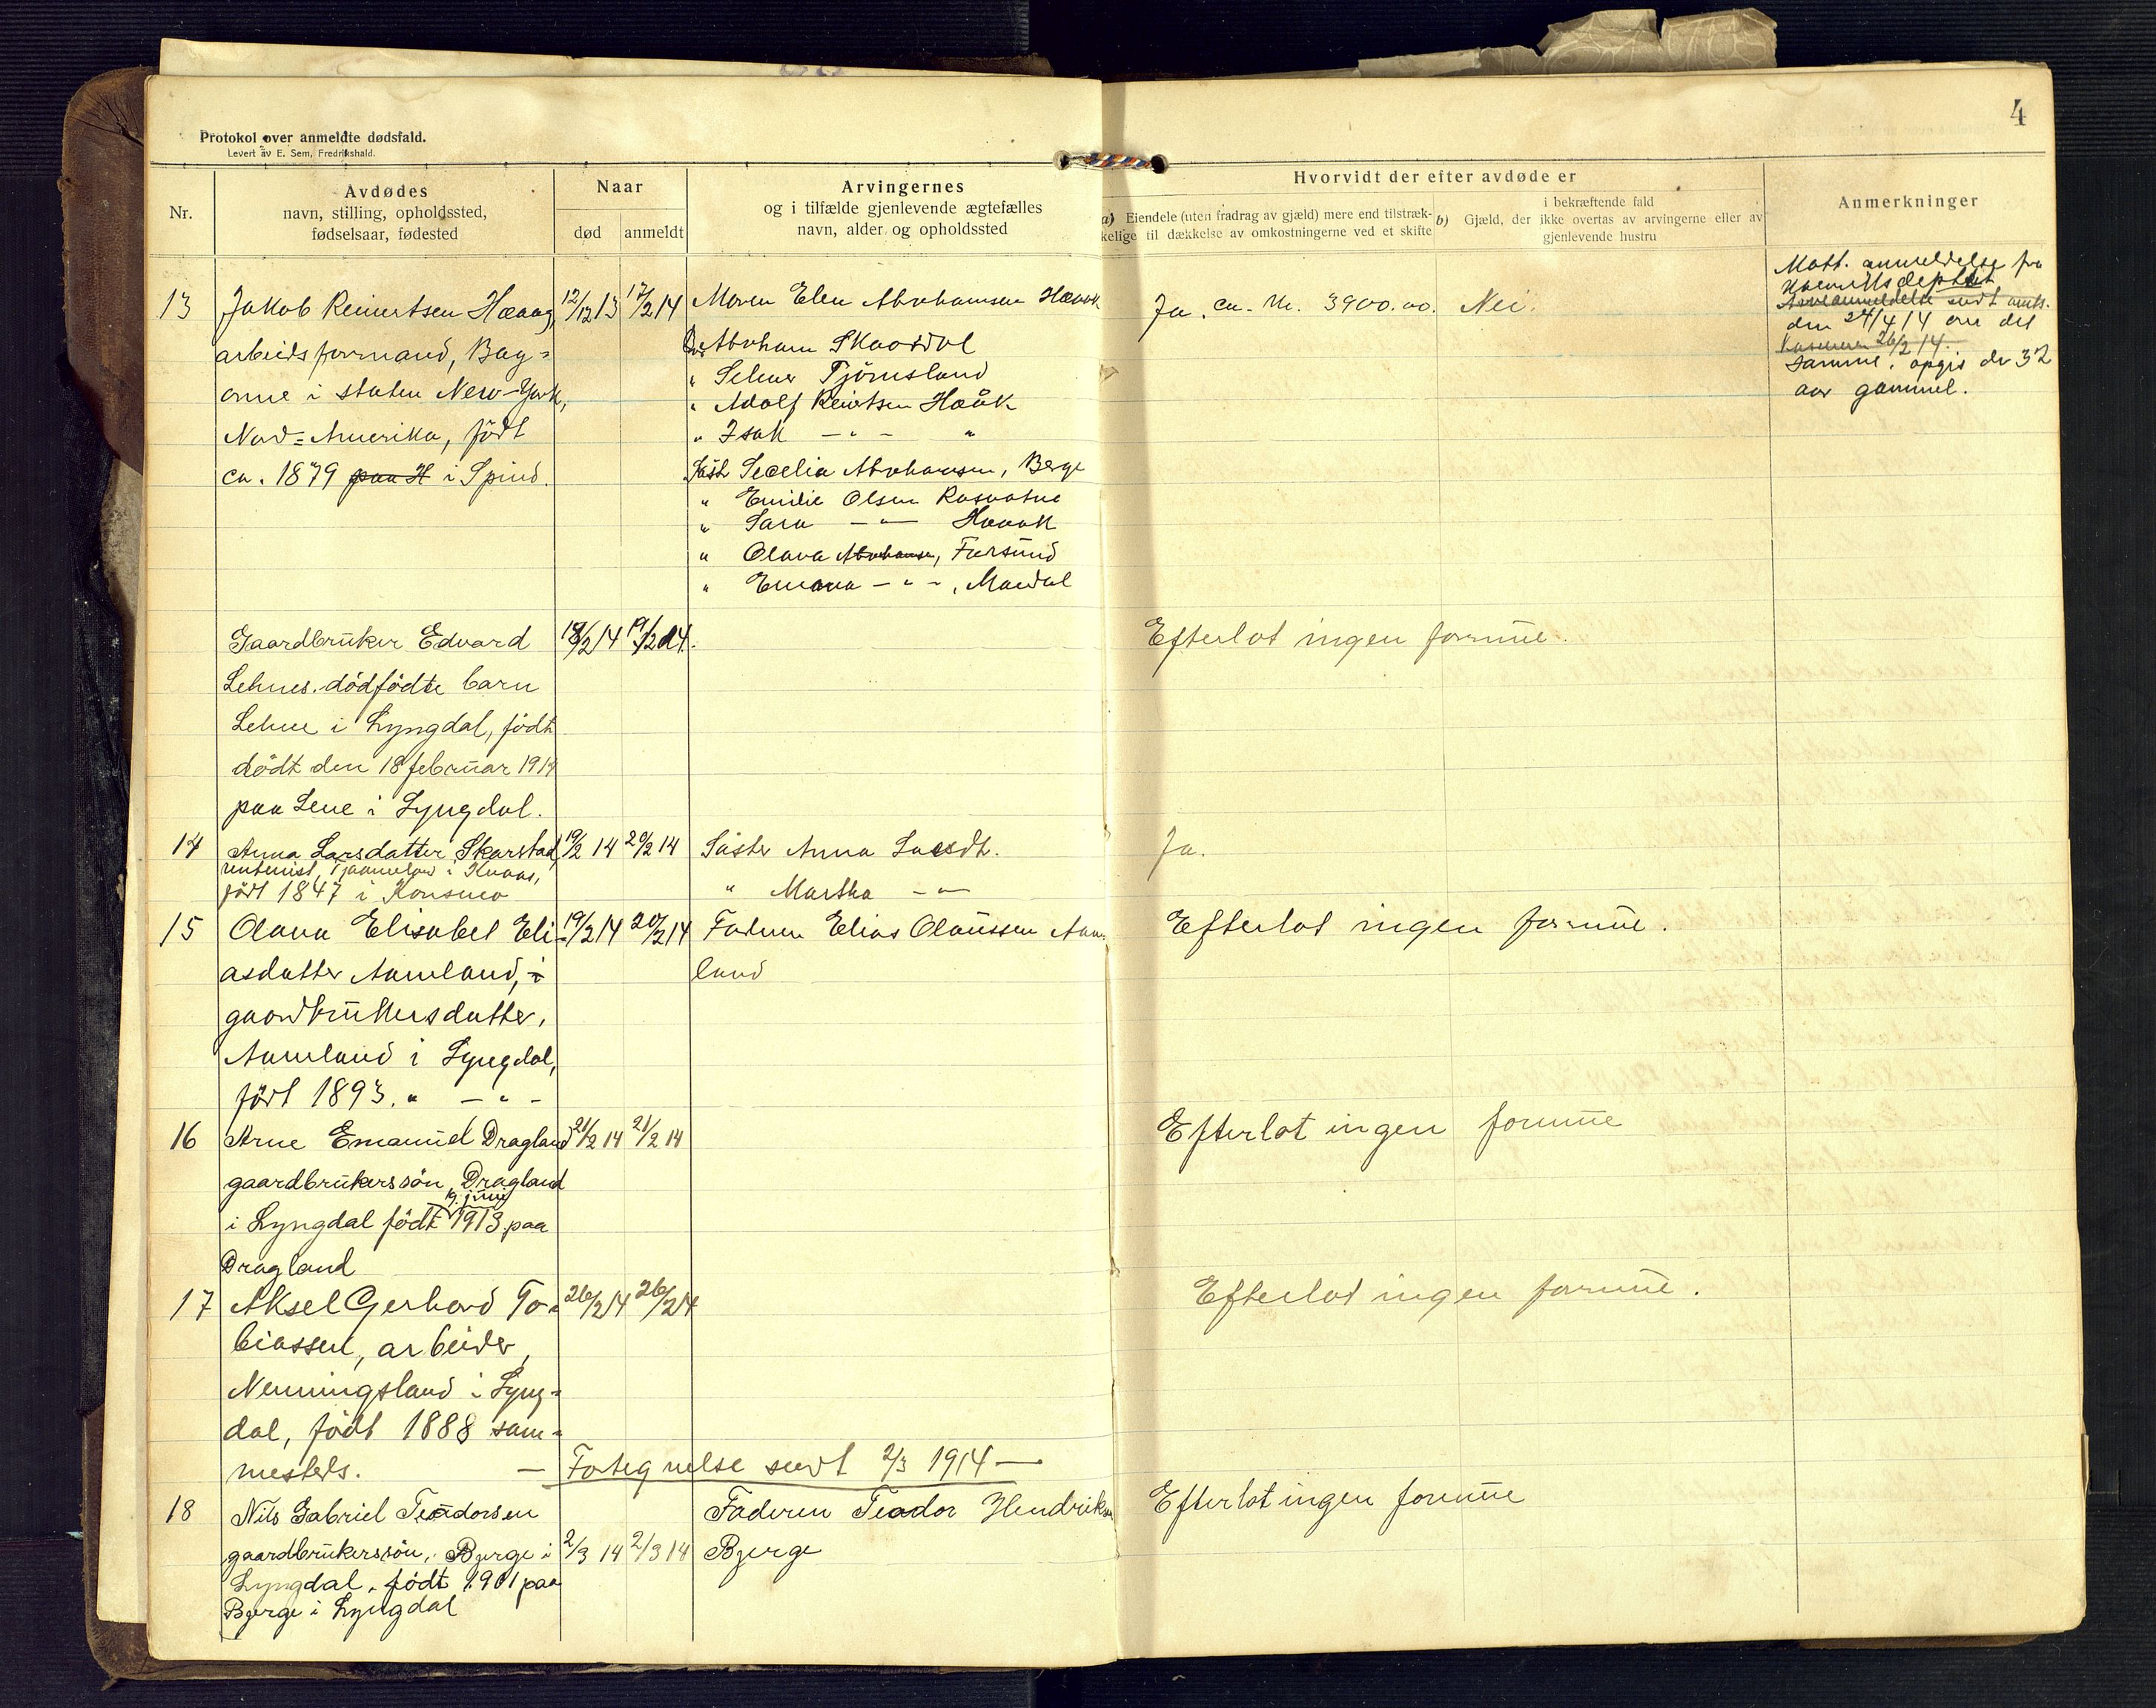 4
Protokol over anmeldte dødsfald.
Levert av E. Sem, Fredrikshald.
Nr.
Avdødes
navn, stilling, opholdssted,
fødselsaar, fødested
Naar
død
anmeldt
Arvingernes
og i tilfælde gjenlevende ægtefælles
navn, alder og opholdssted
Hvorvidt der efter avdøde er
a) Eiendele (uten fradrag av gjæld) mere end tilstræk-
kelige til dækkelse av omkostningerne ved et skifte
i bekræftende fald
b) Gjæld, der ikke overtas av arvingerne eller av
gjenlevende hustru
Anmerkninger
13 Jakob Reinertsen Haaag, 12/12 13 17/2 14 Moren Elen Abrahamsen Haaak Ja, ca. kr. 3900.00. Nei.
arbeidsformand, Bay=
onne i staten New-York,
Nord=Amerika, født
ca. 1879 paa H i Spind.
Abraham Skaardal
" Selmer Tjömsland
" Adolf Reinertsen Haåk
" Isak - " - "
Søst. Secelia Abrahamsen, Berge
" Emilie Olsen Rasvatne
" Sara - " - Haaak
" Olava Abrahamsen, Farsund
" Emma - " - , Mandal
Mott. anmeldelse fra
sendt amts.
den 24/4 14 om det
26/2 14.
samme. opgis da 32
aar gammel.
Gaardbruker Edvard 18/2 14 19/2 14. Efterlot ingen formue.
Lehnes dödfödte barn
Lehne i Lyngdal, födt
dödt den 18 februar 1914
paa Lene i Lyngdal.
14 Anna Larsdatter Skarstad, 19/2 14 20/2 14 Søster Anna Larsdt. Ja.
rentenist, i Kvaas,
født 1847 i Konsmo
" Martha - " -
15 Olava Elisabet Eli- 19/2 14 20/2 14 Faderen Elias Olaussen Aam- Efterlot ingen formue.
asdatter Aamland, i
land
gaardbrukersdatter,
Aamland i Lyngdal,
født 1893. " - " -
16 Arne Emanuel Dragland 21/2 14 21/2 14 Efterlot ingen formue
gaardbrukerssön, Dragland
19. juni
i Lyngdal födt 1913 paa
Dragland
17 Aksel Gerhard To- 26/2 14 26/2 14 Efterlot ingen formue.
biassen, arbeider,
Nenningsland i Lyng=
dal, født 1888 sam=
mesteds. - Fortegnelse sendt 2/3 1914 -
18 Nils Gabriel Teodorsen Faderen Teodor Hendriksen Efterlot ingen formue
gaardbrukerssön, Bjerge i 2/3 14 2/3 14 Bjerge
Lyngdal, födt 1901 paa
Bjerge i Lyngdal